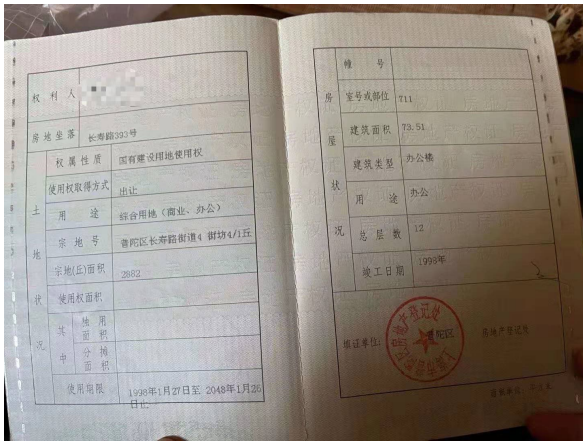 权利人
房地坐落 长寿路393号
土地状况
权属性质 国有建设用地使用权
使用权取得方式 出让
用途 综合用地（商业、办公）
宗地号 普陀区长寿路街道4 街坊4/1丘
宗地(丘)面积 2882
使用权面积
其中
独用面积
分摊面积
使用期限 1998年1月27日至 2048年1月26
日止
房屋状况
幢号
室号或部位 711
建筑面积 73.51
建筑类型 办公楼
用途 办公
总层数 12
竣工日期 1998年
填证单位： 普陀区 房地产登记处